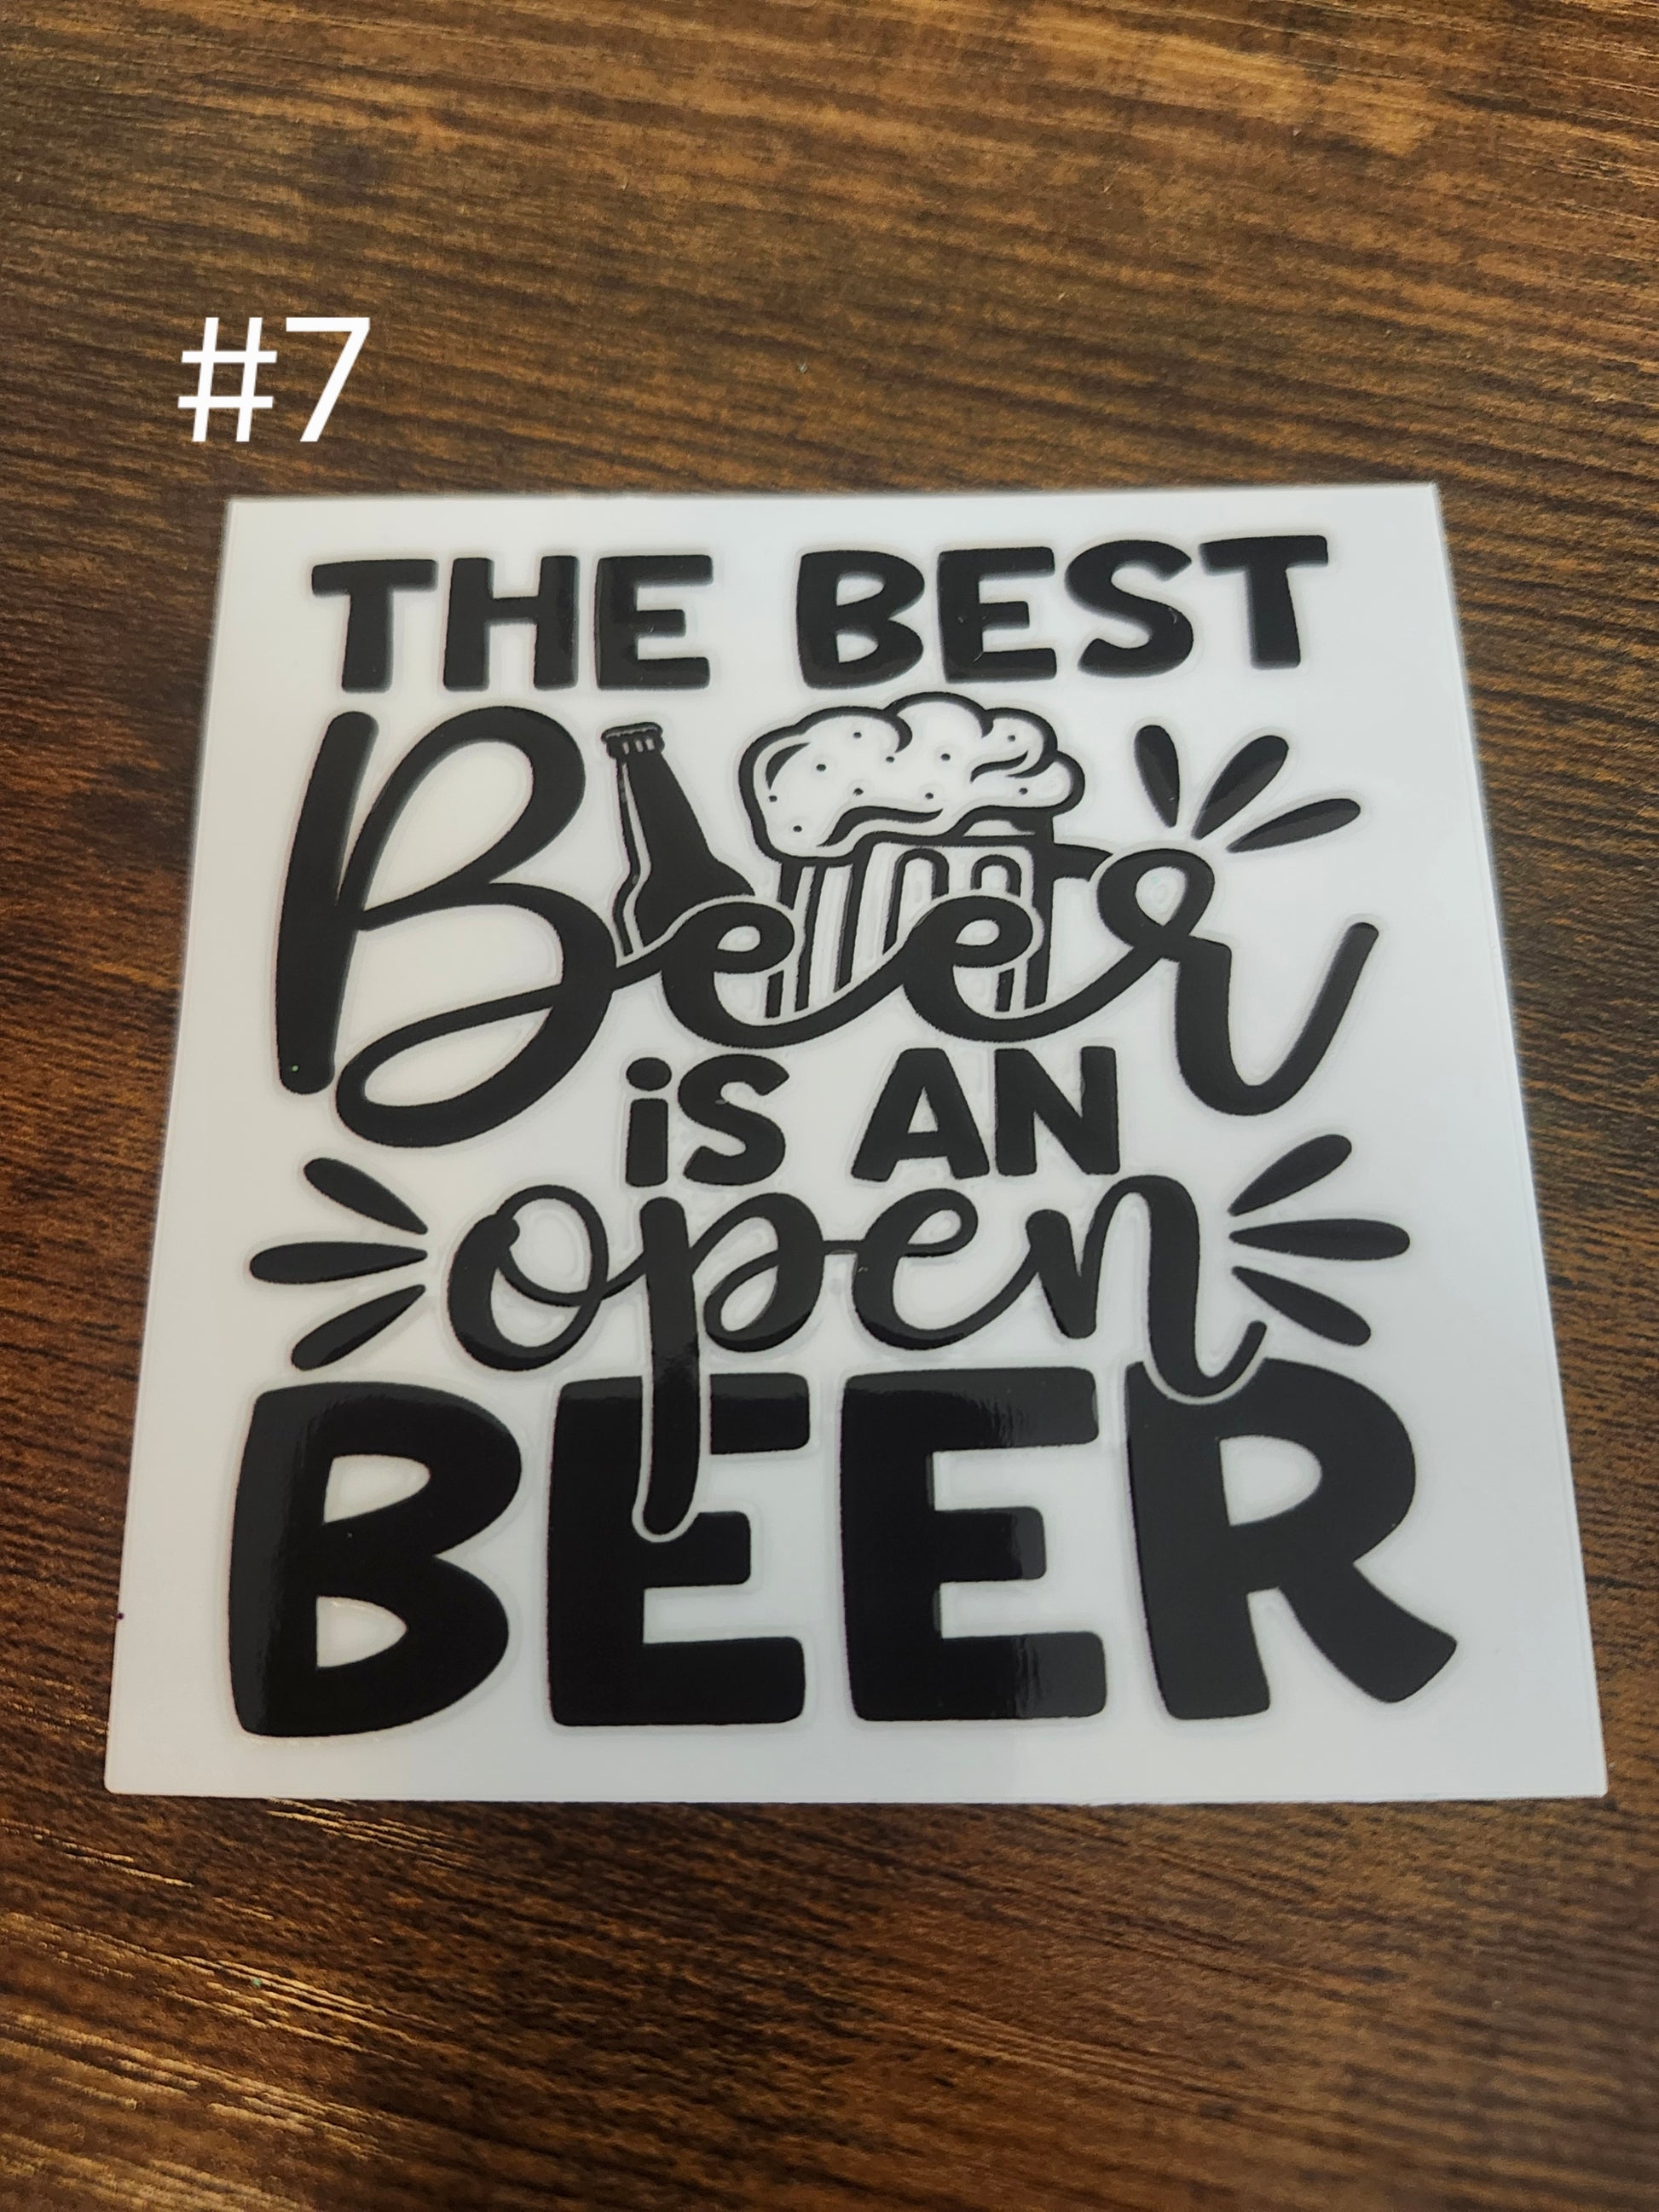 #7
THE BEST
Beer
iS AN
open
BEER